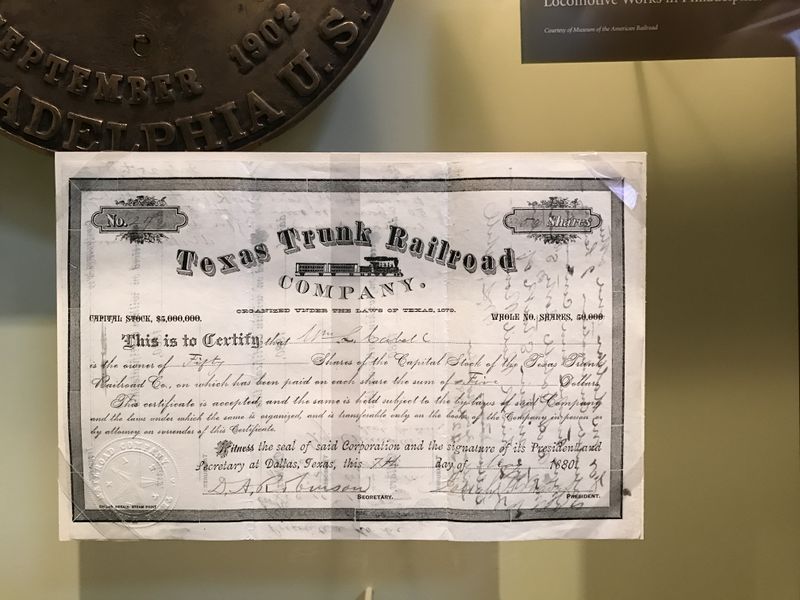 SEPTEMBER 1902
ADELPHIA U.S.
Locomotive Works in Philadelphia
Courtesy of Museum of the American Railroad
No. 
50 Shares
Texas Trunk Railroad
COMPANY.
ORGANIZED UNDER THE LAWS OF TEXAS, 1879.
CAPITAL STOCK, $5,000,000.
WHOLE NO. SHARES, 50,000
This is to Certify that Wm L. Cabell
is the owner of Fifty Shares of the Capital Stock of the Texas Trunk
Railroad Co., on which has been paid on each share the sum of Five Dollars
This certificate is accepted, and the same is held subject to the by-laws of said Company
and the laws under which the same is organized, and is transferable only on the books of the Company in person or
by attorney on surrender of this Certificate.
Witness the seal of said Corporation and the signature of its President and
Secretary at Dallas, Texas, this 7th day of 1880
D. A. Robinson
SECRETARY.
PRESIDENT.